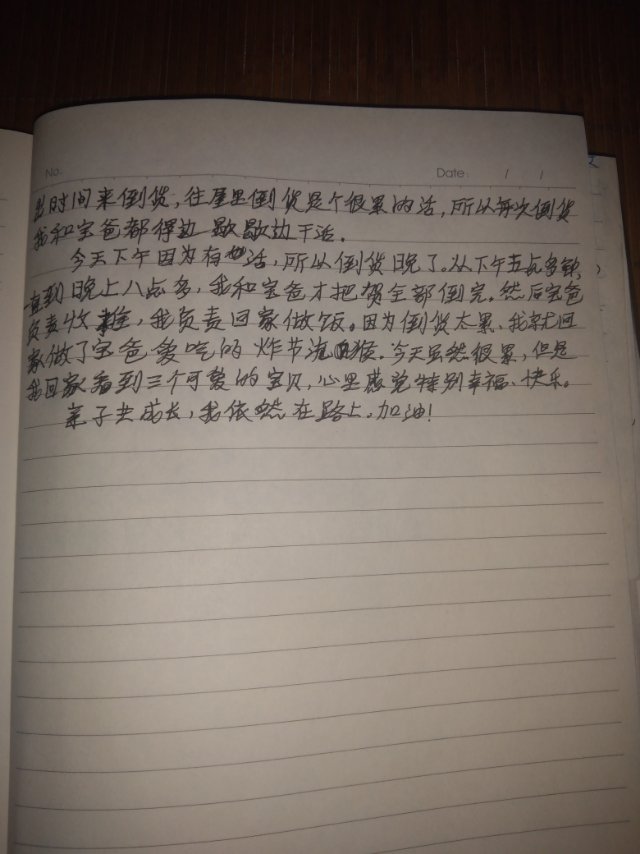 No.
Date: / /
出时间来倒货,往屋里倒货是个很累的活,所以每次倒货
我和宝爸都得边歇歇边干活.
今天下午因为有活,所以倒货晚了.从下午五点多钟,
一直到晚上八点多,我和宝爸才把货全部倒完.然后宝爸
负责收摊,我负责回家做饭。因为倒货太累,我就回
家做了宝爸爱吃的炸节流猴.今天虽然很累,但是
我回家看到三个可爱的宝贝,心里感觉特别幸福、快乐。
亲子共成长,我依然在路上.加油!